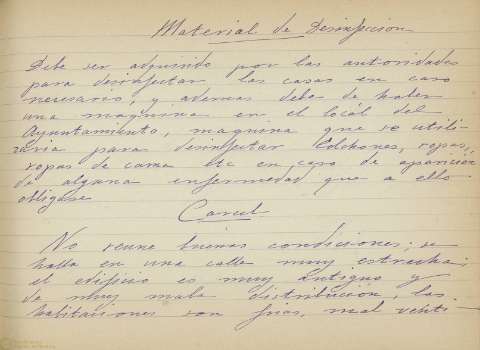 Material de Desinfeccion
Debe ser adquirido por las autoridades
para desinfectar las casas en caso
necesario, y ademas debe de haber
una maquina en el locál del
Ayuntamiento, maquina que se utili-
zaria para desinfectar colchones, ropas,
ropas de cama etc en caso de aparición
de alguna enfermedad que a ello
obligase
Carcel
No reune buenas condiciones; se
halla en una calle muy estrecha;
el edificio es muy antiguo y
de muy mala distribución, las
habitaciones son frias, mal venti-